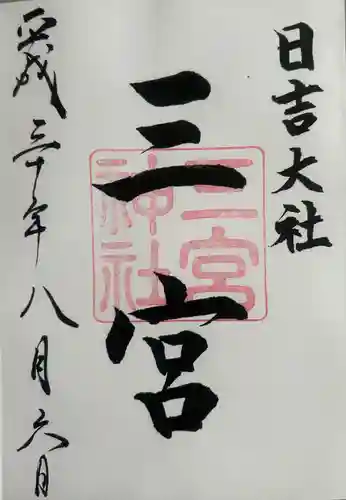 日吉大社
三宮
三宮神社
平成三十年八月六日